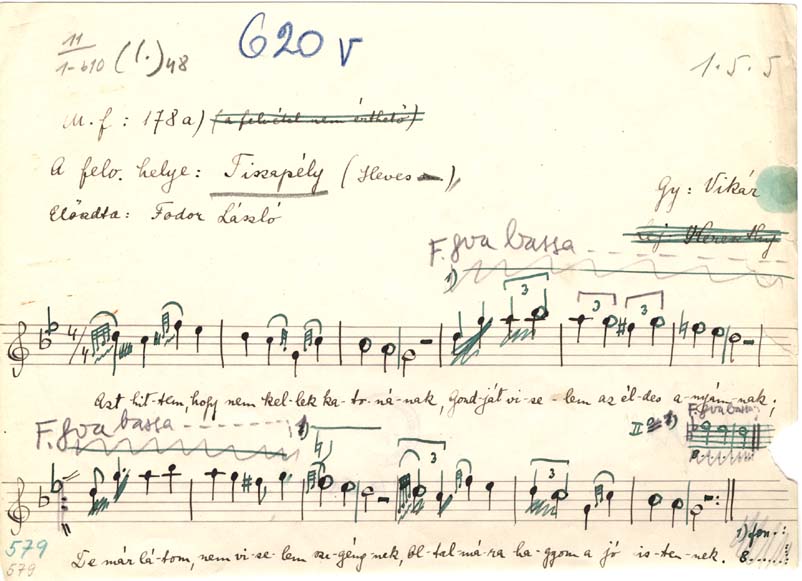 11
1-b10 (1.) 48
620 v
1. 5. 5
M. f : 178a) (a felvétel nem érthető)
A felv. helye: Tiszapély (Heves)
Gy: Vikár
Előadta: Fodor László
F. 8va bassa
1) 3 3 3
4/4
Azt hit-tem, hogy nem kel-lek ka-to-ná-nak, gond-ját vi-se-lem az él-des a-nyám-nak;
F. 8va bassa
1)
II 1) F. 8va bassa
8
3 3
De már lá-tom, nem vi-se-lem sze-gény-nek, Ol-tal-má-ra ha-gyom a jó is-ten-nek.
1) fon. :
8
579
579